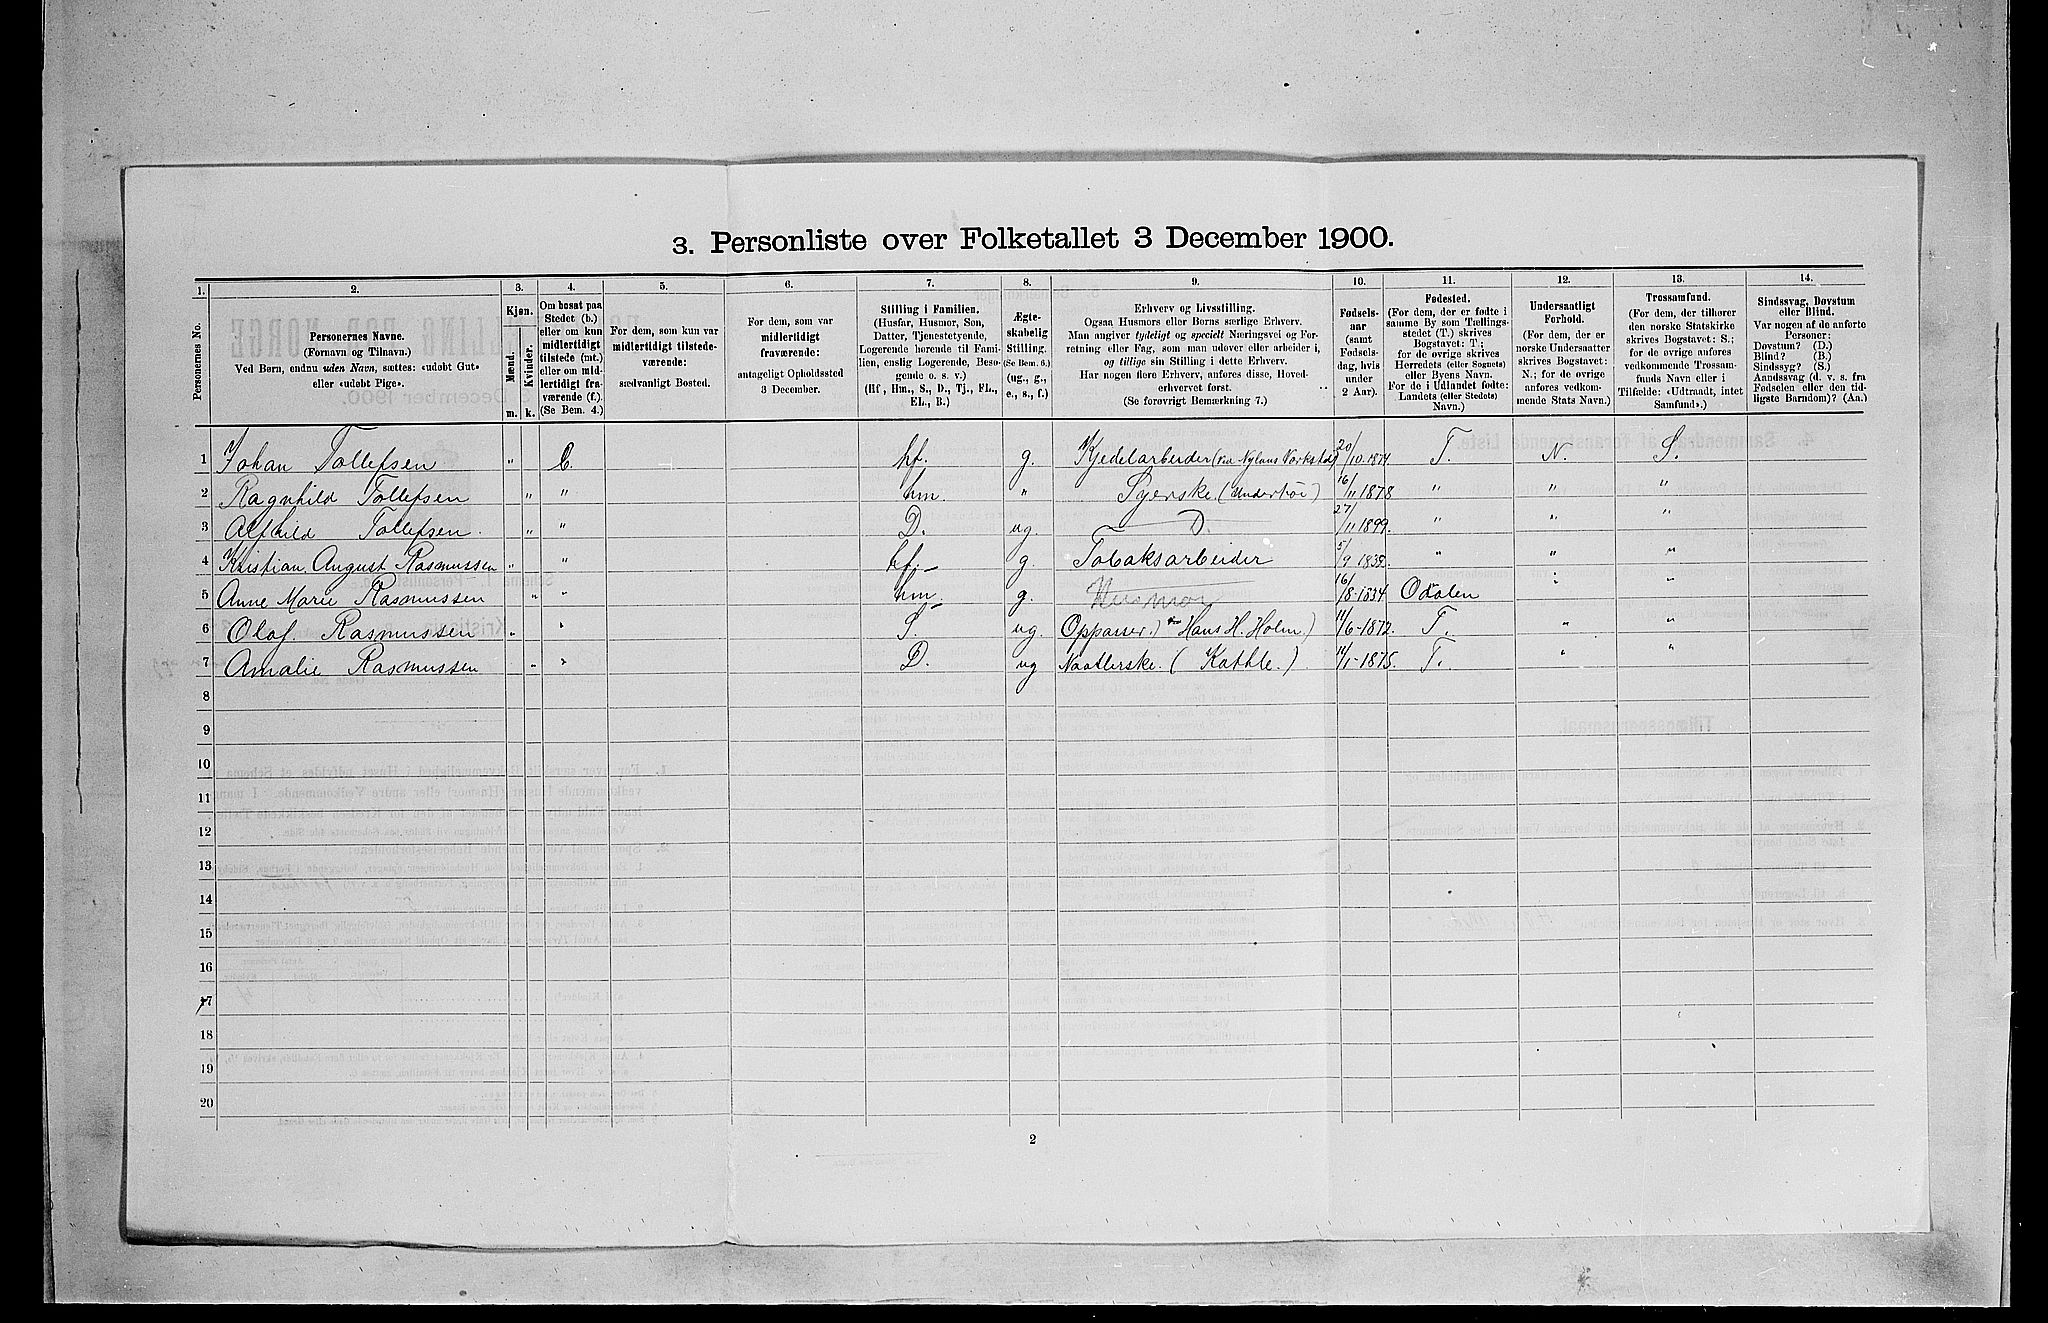 3. Personliste over Folketallet 3 December 1900.
1. 2. 3. 4. 5. 6. 7. 8. 9. 10. 11. 12. 13. 14.
Personernes No.
Personernes Navne.
(Fornavn og Tilnavn.)
Ved Børn, endnu uden Navn, sættes: «udøbt Gut»
eller «udøbt Pige».
Kjøn.
Mænd.
Kvinder.
m. k.
Om bosat paa
Stedet (b.)
eller om kun
midlertidigt
tilstede (mt.)
eller om mid-
lertidigt fra-
værende (f.).
(Se Bem. 4.)
For dem, som kun var
midlertidigt tilstede-
værende:
sædvanligt Bosted.
For dem, som var
midlertidigt
fraværende:
antageligt Opholdssted
3 December.
Stilling i Familien.
(Husfar, Husmor, Søn,
Datter, Tjenestetyende,
Logerende hørende til Fami-
lien, enslig Logerende, Besø-
gende o. s. v.)
(Hf, Hm., S., D., Tj., FL.,
EL., B.)
Ægte-
skabelig
Stilling.
(Se Bem. 6.)
(ug., g.,
e., s., f.)
Erhverv og Livsstilling.
Ogsaa Husmors eller Børns særlige Erhverv.
Man angiver tydeligt og specielt Næringsvei og For-
retning eller Fag, som man udøver eller arbeider i,
og tillige sin Stilling i dette Erhverv.
Har nogen flere Erhverv, anføres disse, Hoved-
erhvervet først.
(Se forøvrigt Bemærkning 7.)
Fødsels-
aar
(samt
Fødsels-
dag, hvis
under
2 Aar).
Fødested.
(For dem, der er fødte i
samme By som Tællings-
stedet (T.) skrives
Bogstavet: T;
for de øvrige skrives
Herredets (eller Sognets)
eller Byens Navn.
For de i Udlandet fødte:
Landets (eller Stedets)
Navn.)
Undersaatligt
Forhold.
(For dem, der er
norske Undersaatter
skrives Bogstavet:
N.; for de øvrige
anføres vedkom-
mende Stats Navn.)
Trossamfund.
(For dem, der tilhører
den norske Statskirke
skrives Bogstavet: S.;
for de øvrige anføres
vedkommende Trossam-
funds Navn eller i
Tilfælde: «Udtraadt, intet
Samfund».)
Sindssvag, Døvstum
eller Blind.
Var nogen af de anførte
Personer:
Døvstum? (D.)
Blind? (B.)
Sindssyg? (S.)
Aandssvag (d. v. s. fra
Fødselen eller den tid-
ligste Barndom)? (Aa.)
1 Johan Tollefsen " b. hf. g. Kjedelarbeider (ved Nylans Værksted) 20/10-1874. T. N. S.
2 Ragnhild Tollefsen " " hm " Syerske. (Undertøi) 16/11 1878 " " "
3 Alfhild Tollefsen. " " D. ug. D. 27/11 1899. " " "
4 Kristian August Rasmussen " " hf. g. Tobaksarbeider 5/9 1839. " " "
5 Anne Marie Rasmussen " " hm g. Husmor 16/8-1834 Odalen " "
6 Olaf Rasmussen " " S. ug. Oppasser.) Hans H. Holm.) 11/6-1872. T. " "
7 Amalie Rasmussen " " D. ug (Kathle.) 14/1-1875. T. " "
8
9
10
11
12
13
14
15
16
17
18
19
20
2